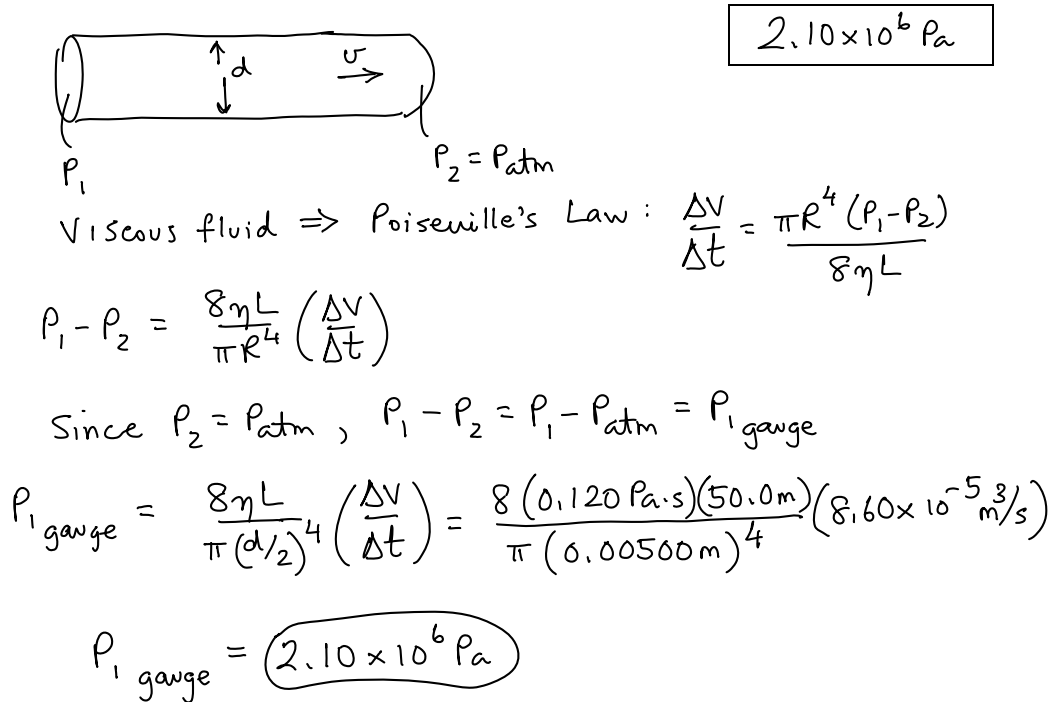 2.10×10⁶ Pa
d
v
P₁
P₂ = Patm
Viscous fluid ⇒ Poiseuille's Law : ΔV/Δt = πR⁴ (P₁-P₂)/8ηL
P₁ - P₂ = 8ηL/πR⁴ (ΔV/Δt)
Since P₂ = Patm , P₁ - P₂ = P₁ - Patm = P₁ gauge
P₁ gauge = 8ηL/π(d/2)⁴ (ΔV/Δt) = 8 (0.120 Pa·s)(50.0m)/π (0.00500m)⁴ (8.60× 10⁻⁵ m³/s)
P₁ gauge = 2.10 × 10⁶ Pa